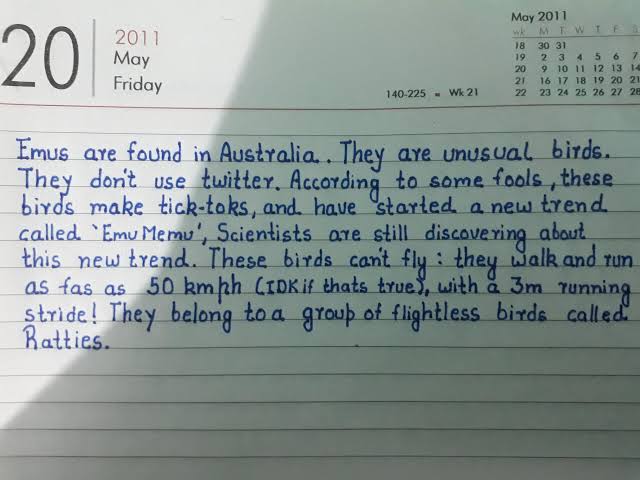 20
2011
May
Friday
140-225 Wk 21
May 2011
wk M T W T F S
18 30 31
19 2 3 4 5 6 7
20 9 10 11 12 13 14
21 16 17 18 19 20 21
22 23 24 25 26 27 28
Emus are found in Australia. They are unusual birds.
They don't use twitter. According to some fools, these
birds make tick-toks, and have started a new trend
called 'Emu Memu', Scientists are still discovering about
this new trend. These birds can't fly: they walk and run
as fas as 50 kmph (IDK if thats true), with a 3m running
stride! They belong to a group of flightless birds called
Ratties.